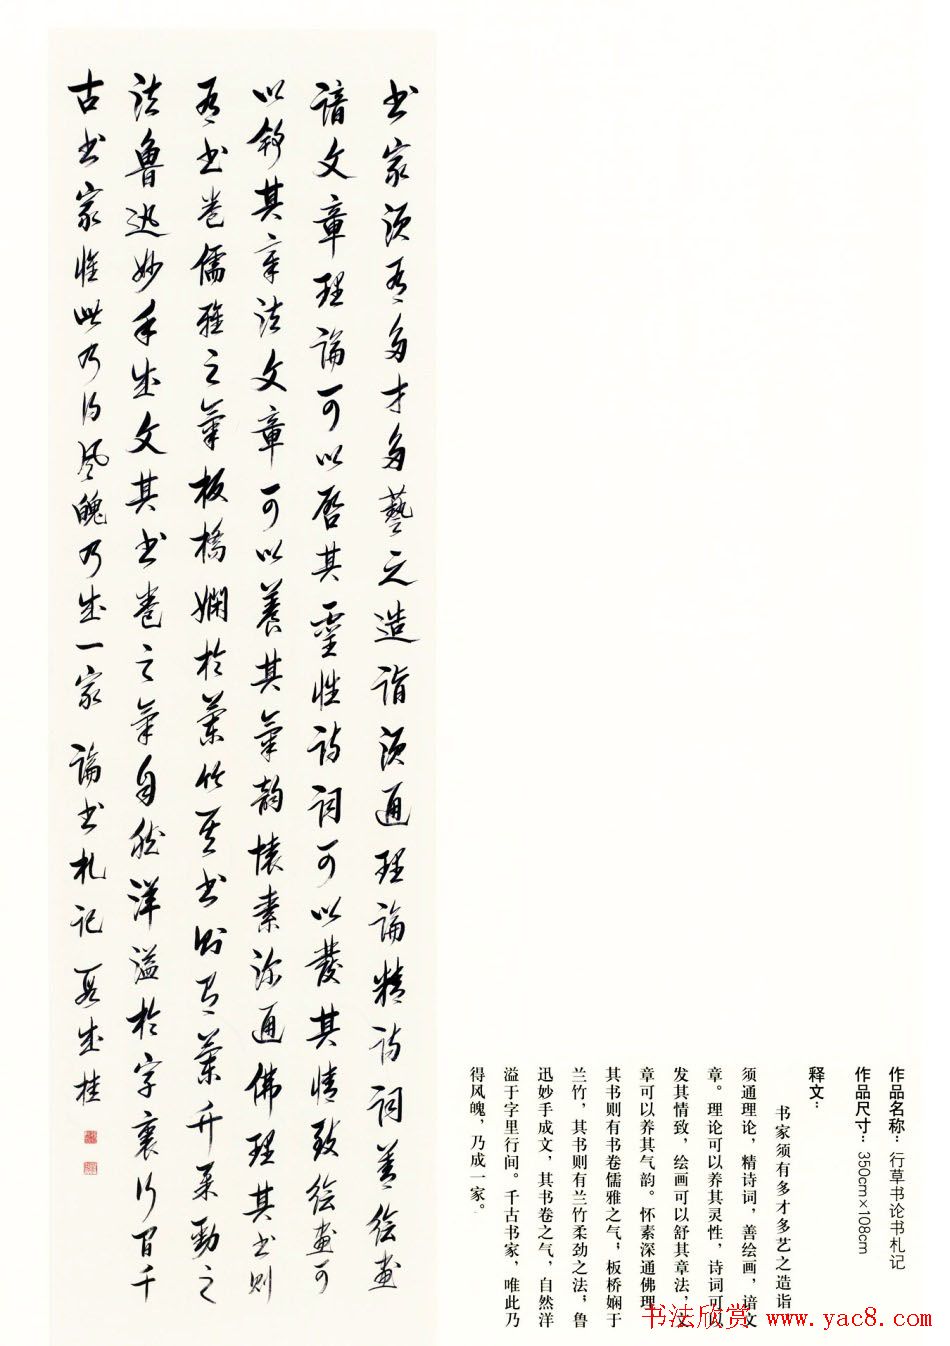 书家须有多才多藝之造诣须通理论精诗词善绘画
谙文章理论可以启其靈性诗词可以發其情致绘画可
以舒其章法文章可以養其氣韵懷素深通佛理其书则
有书卷儒雅之氣板橋娴於蘭竹其书则有蘭竹柔勁之
法魯迅妙手成文其书卷之氣自然洋溢於字裏行间千
古书家惟此乃得风魄乃成一家 论书札记 成桂
作品名称：行草书论书札记
作品尺寸：350cm×108cm
释文：
书家须有多才多艺之造诣
须通理论，精诗词，善绘画，谙文
章。理论可以养其灵性，诗词可以
发其情致，绘画可以舒其章法，文
章可以养其气韵。怀素深通佛理，
其书则有书卷儒雅之气；板桥娴于
兰竹，其书则有兰竹柔劲之法；鲁
迅妙手成文，其书卷之气，自然洋
溢于字里行间。千古书家，唯此乃
得风魄，乃成一家。
书法欣赏 www.yac8.com